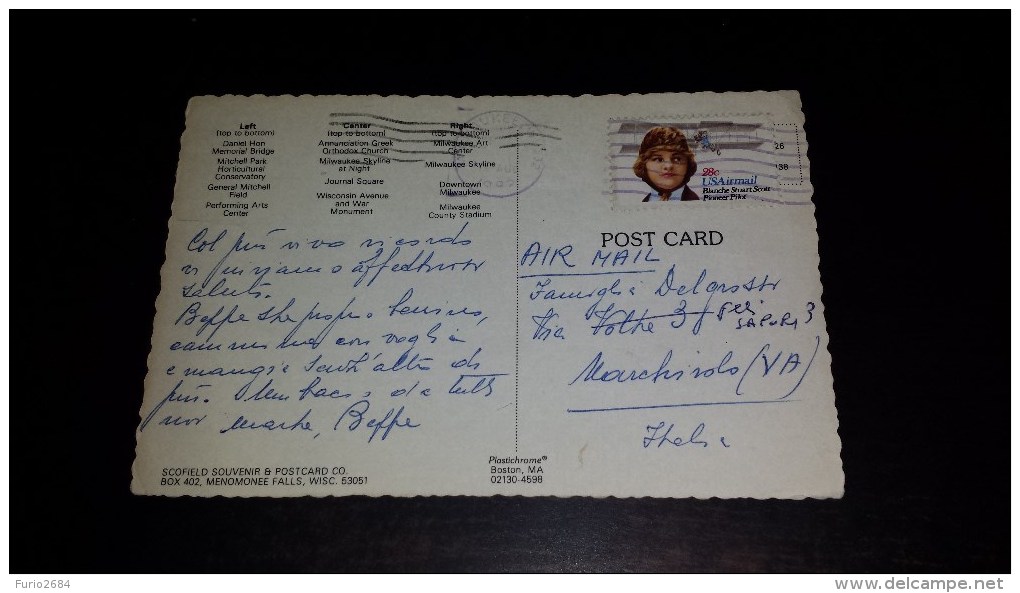 Left
(top to bottom)
Daniel Hon
Memorial Bridge
Mitchell Park
Horticultural
Conservatory
General Mitchell
Field
Performing Arts
Center
Center
(top to bottom)
Annunciation Greek
Orthodox Church
Milwaukee Skyline
at Night
Journal Square
Wisconsin Avenue
and War
Monument
Right
(top to bottom)
Milwaukee Art
Center
Milwaukee Skyline
Downtown
Milwaukee
Milwaukee
County Stadium
Col più vivo ricordo
vi inviamo affettuosi
saluti.
Beppe sta proprio benino,
cammina con voglia
e mangia senz'altro di
più. Un bacio da tutti
noi Beppe
SCOFIELD SOUVENIR & POSTCARD CO.
BOX 402, MENOMONEE FALLS, WISC. 53051
Plastichrome®
Boston, MA
02130-4598
28c
USAirmail
Blanche Stuart Scott
Pioneer Pilot
26
38
POST CARD
AIR MAIL
Famiglia Delgrosso
Via Volta 3
3
Marchirolo (VA)
Italia
Furio2684
www.delcampe.net